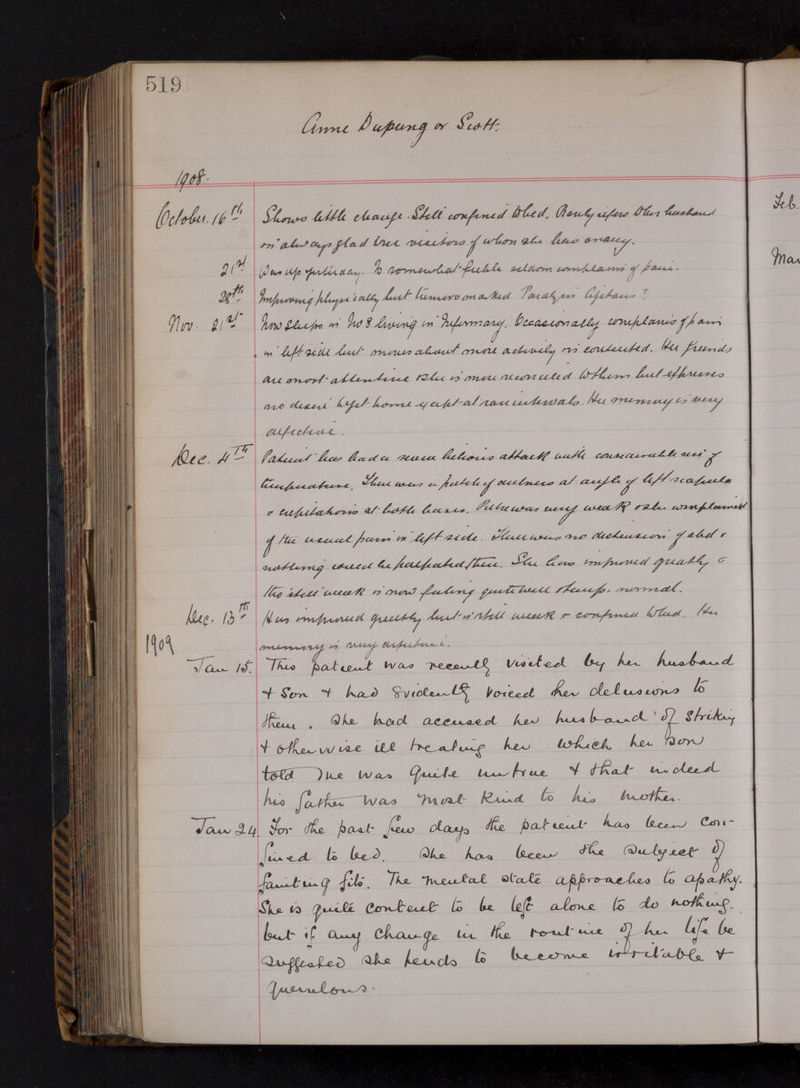 519
Anne Dupung or Scott.
1908.
October. 16th Shows little change. Still confined to bed. Rarely refers to her husband
is always glad to see visitors of whom she has many.
21st Was up yesterday. Is somewhat feeble seldom complains of pain.
28th Improving physically but tumours marked Paralysis Agitans?
Nov. 21st Now Sleeps in No 8 living in Infirmary. Occasionally complains of pain
in left side but moves about more actively is contented. Her friends
are most attentive & she is more reconciled to them but expresses
no desire to get home except at rare intervals. Her memory is very
defective.
Dec. 4th Patient has had a severe bilious attack with considerable rise of
temperature. There was a patch of dulness at angle of left scapula
& crepitations at both bases. Pulse was very weak & she complained
of the usual pain in left side. There was no distension of abd &
nothing could be palpated there. She has improved greatly &
tho still weak is now feeling quite well & temp. normal.
Dec. 13th Has improved greatly but is still weak & confined to bed. Her
memory is very defective.
1909
Jan 15. This patient was recently visited by her husband
& Son & had evidently voiced her delusions to
them. She had accused her husband of striking
& otherwise ill treating her which her son
told me was quite untrue & that indeed
his father was most kind to his mother.
Jan 24. For the past few days the patient has been con-
fined to bed. She has been the subject of
fainting fits. The mental state approaches to apathy.
She is quite content to be left alone to do nothing.
but if any change in the routine of her life be
suggested she tends to become irritable &
querulous.
Feb.
Mar